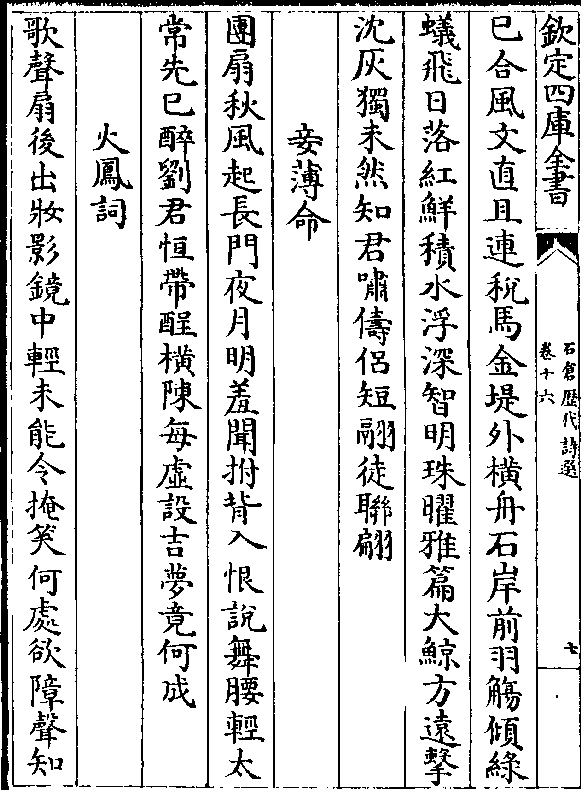 欽定四庫全書
石倉歴代詩選
卷十六
七
已合風文直且連稅馬金堤外橫舟石岸前羽觴傾緑
蟻飛日落紅鮮積水浮深智明珠曜雅篇大鯨方遠擊
沈灰獨未然知君嘯儔侣短翮徒聯翩
妾薄命
團扇秋風起長門夜月明羞聞拊背入恨説舞腰輕太
常先已醉劉君恒帶酲橫陳每虚設吉夢竟何成
火鳳詞
歌聲扇後出妝影鏡中輕未能令掩笑何處欲障聲知